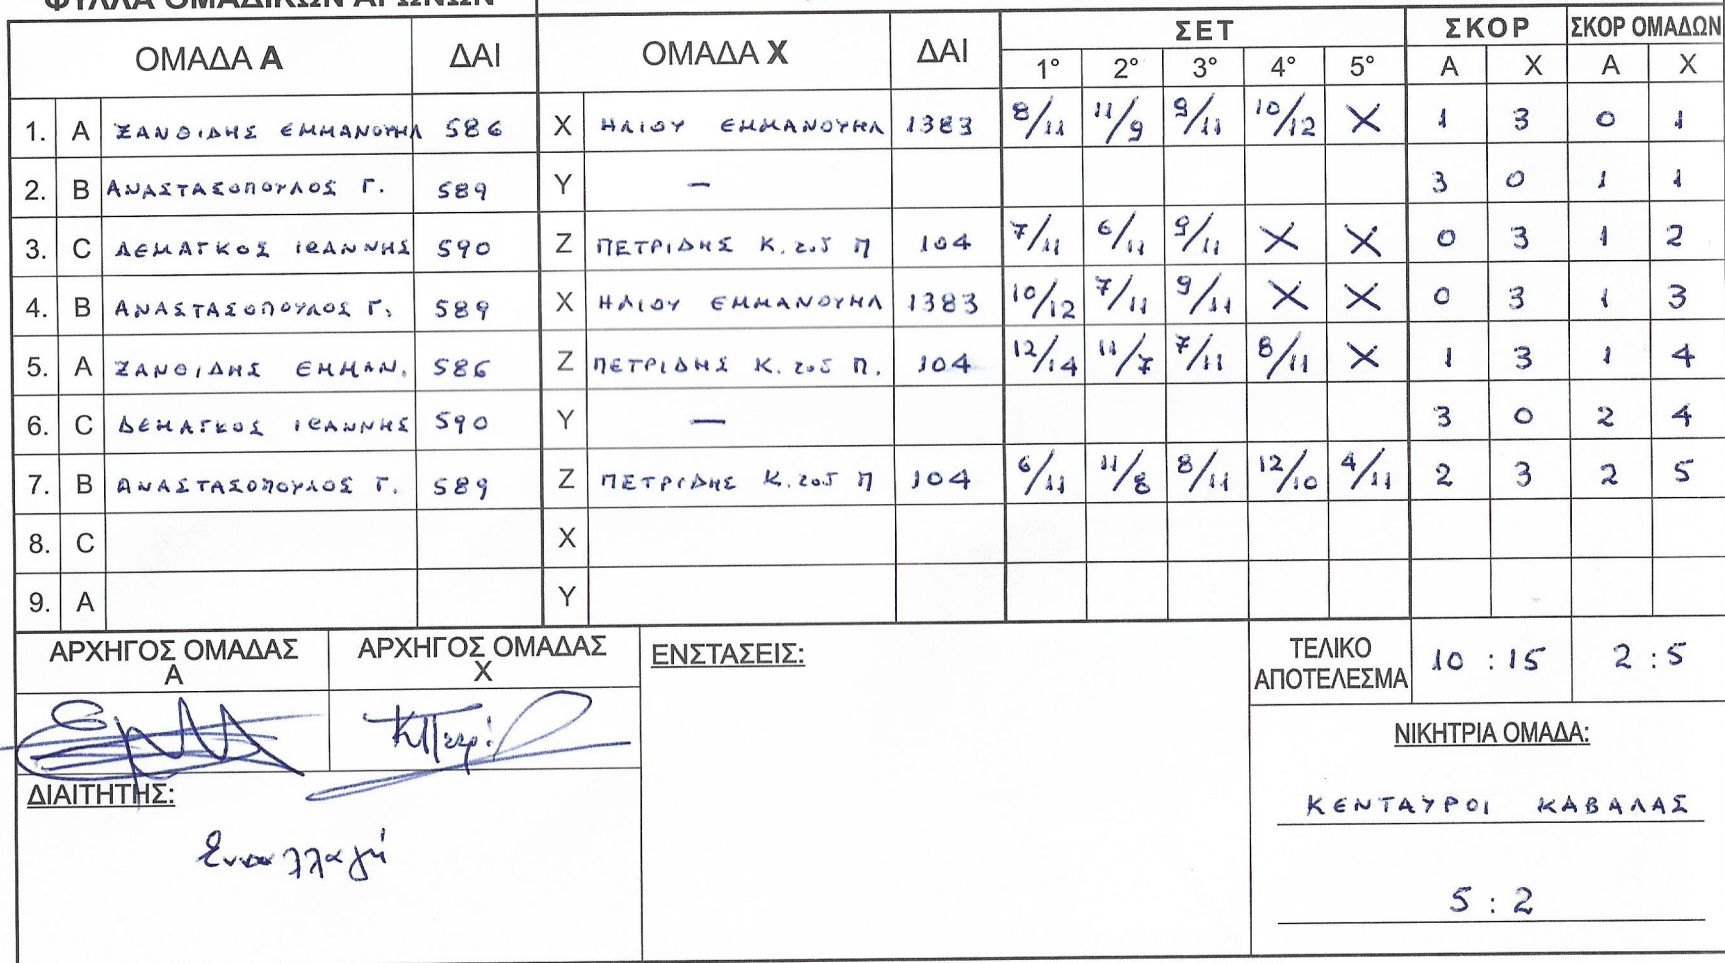 ΦΥΛΛΑ ΟΜΑΔΙΚΩΝ ΑΓΩΝΩΝ
ΟΜΑΔΑ Α ΔΑΙ ΟΜΑΔΑ Χ ΔΑΙ ΣΕΤ ΣΚΟΡ ΣΚΟΡ ΟΜΑΔΩΝ
1° 2° 3° 4° 5° Α Χ Α Χ
1. A ΖΑΝΘΙΔΗΣ ΕΜΜΑΝΟΥΗΛ 586 X ΗΛΙΟΥ ΕΜΜΑΝΟΥΗΛ 1383 8/11 11/9 9/11 10/12 X 1 3 0 1
2. B ΑΝΑΣΤΑΣΟΠΟΥΛΟΣ Γ. 589 Y — 3 0 1 1
3. C ΔΕΜΑΓΚΟΣ ΙΩΑΝΝΗΣ 590 Z ΠΕΤΡΙΔΗΣ Κ. του Π 104 7/11 6/11 9/11 X X 0 3 1 2
4. B ΑΝΑΣΤΑΣΟΠΟΥΛΟΣ Γ. 589 X ΗΛΙΟΥ ΕΜΜΑΝΟΥΗΛ 1383 10/12 7/11 9/11 X X 0 3 1 3
5. A ΖΑΝΘΙΔΗΣ ΕΜΜΑΝ. 586 Z ΠΕΤΡΙΔΗΣ Κ. του Π. 104 12/14 11/7 7/11 8/11 X 1 3 1 4
6. C ΔΕΜΑΓΚΟΣ ΙΩΑΝΝΗΣ 590 Y — 3 0 2 4
7. B ΑΝΑΣΤΑΣΟΠΟΥΛΟΣ Γ. 589 Z ΠΕΤΡΙΔΗΣ Κ. του Π 104 6/11 11/8 8/11 12/10 4/11 2 3 2 5
8. C X
9. A Y
ΑΡΧΗΓΟΣ ΟΜΑΔΑΣ
Α
ΑΡΧΗΓΟΣ ΟΜΑΔΑΣ
Χ
ΕΝΣΤΑΣΕΙΣ:
ΤΕΛΙΚΟ
ΑΠΟΤΕΛΕΣΜΑ
10 : 15 2 : 5
ΔΙΑΙΤΗΤΗΣ:
Εναλλαγή
ΝΙΚΗΤΡΙΑ ΟΜΑΔΑ:
ΚΕΝΤΑΥΡΟΙ ΚΑΒΑΛΑΣ
5 : 2